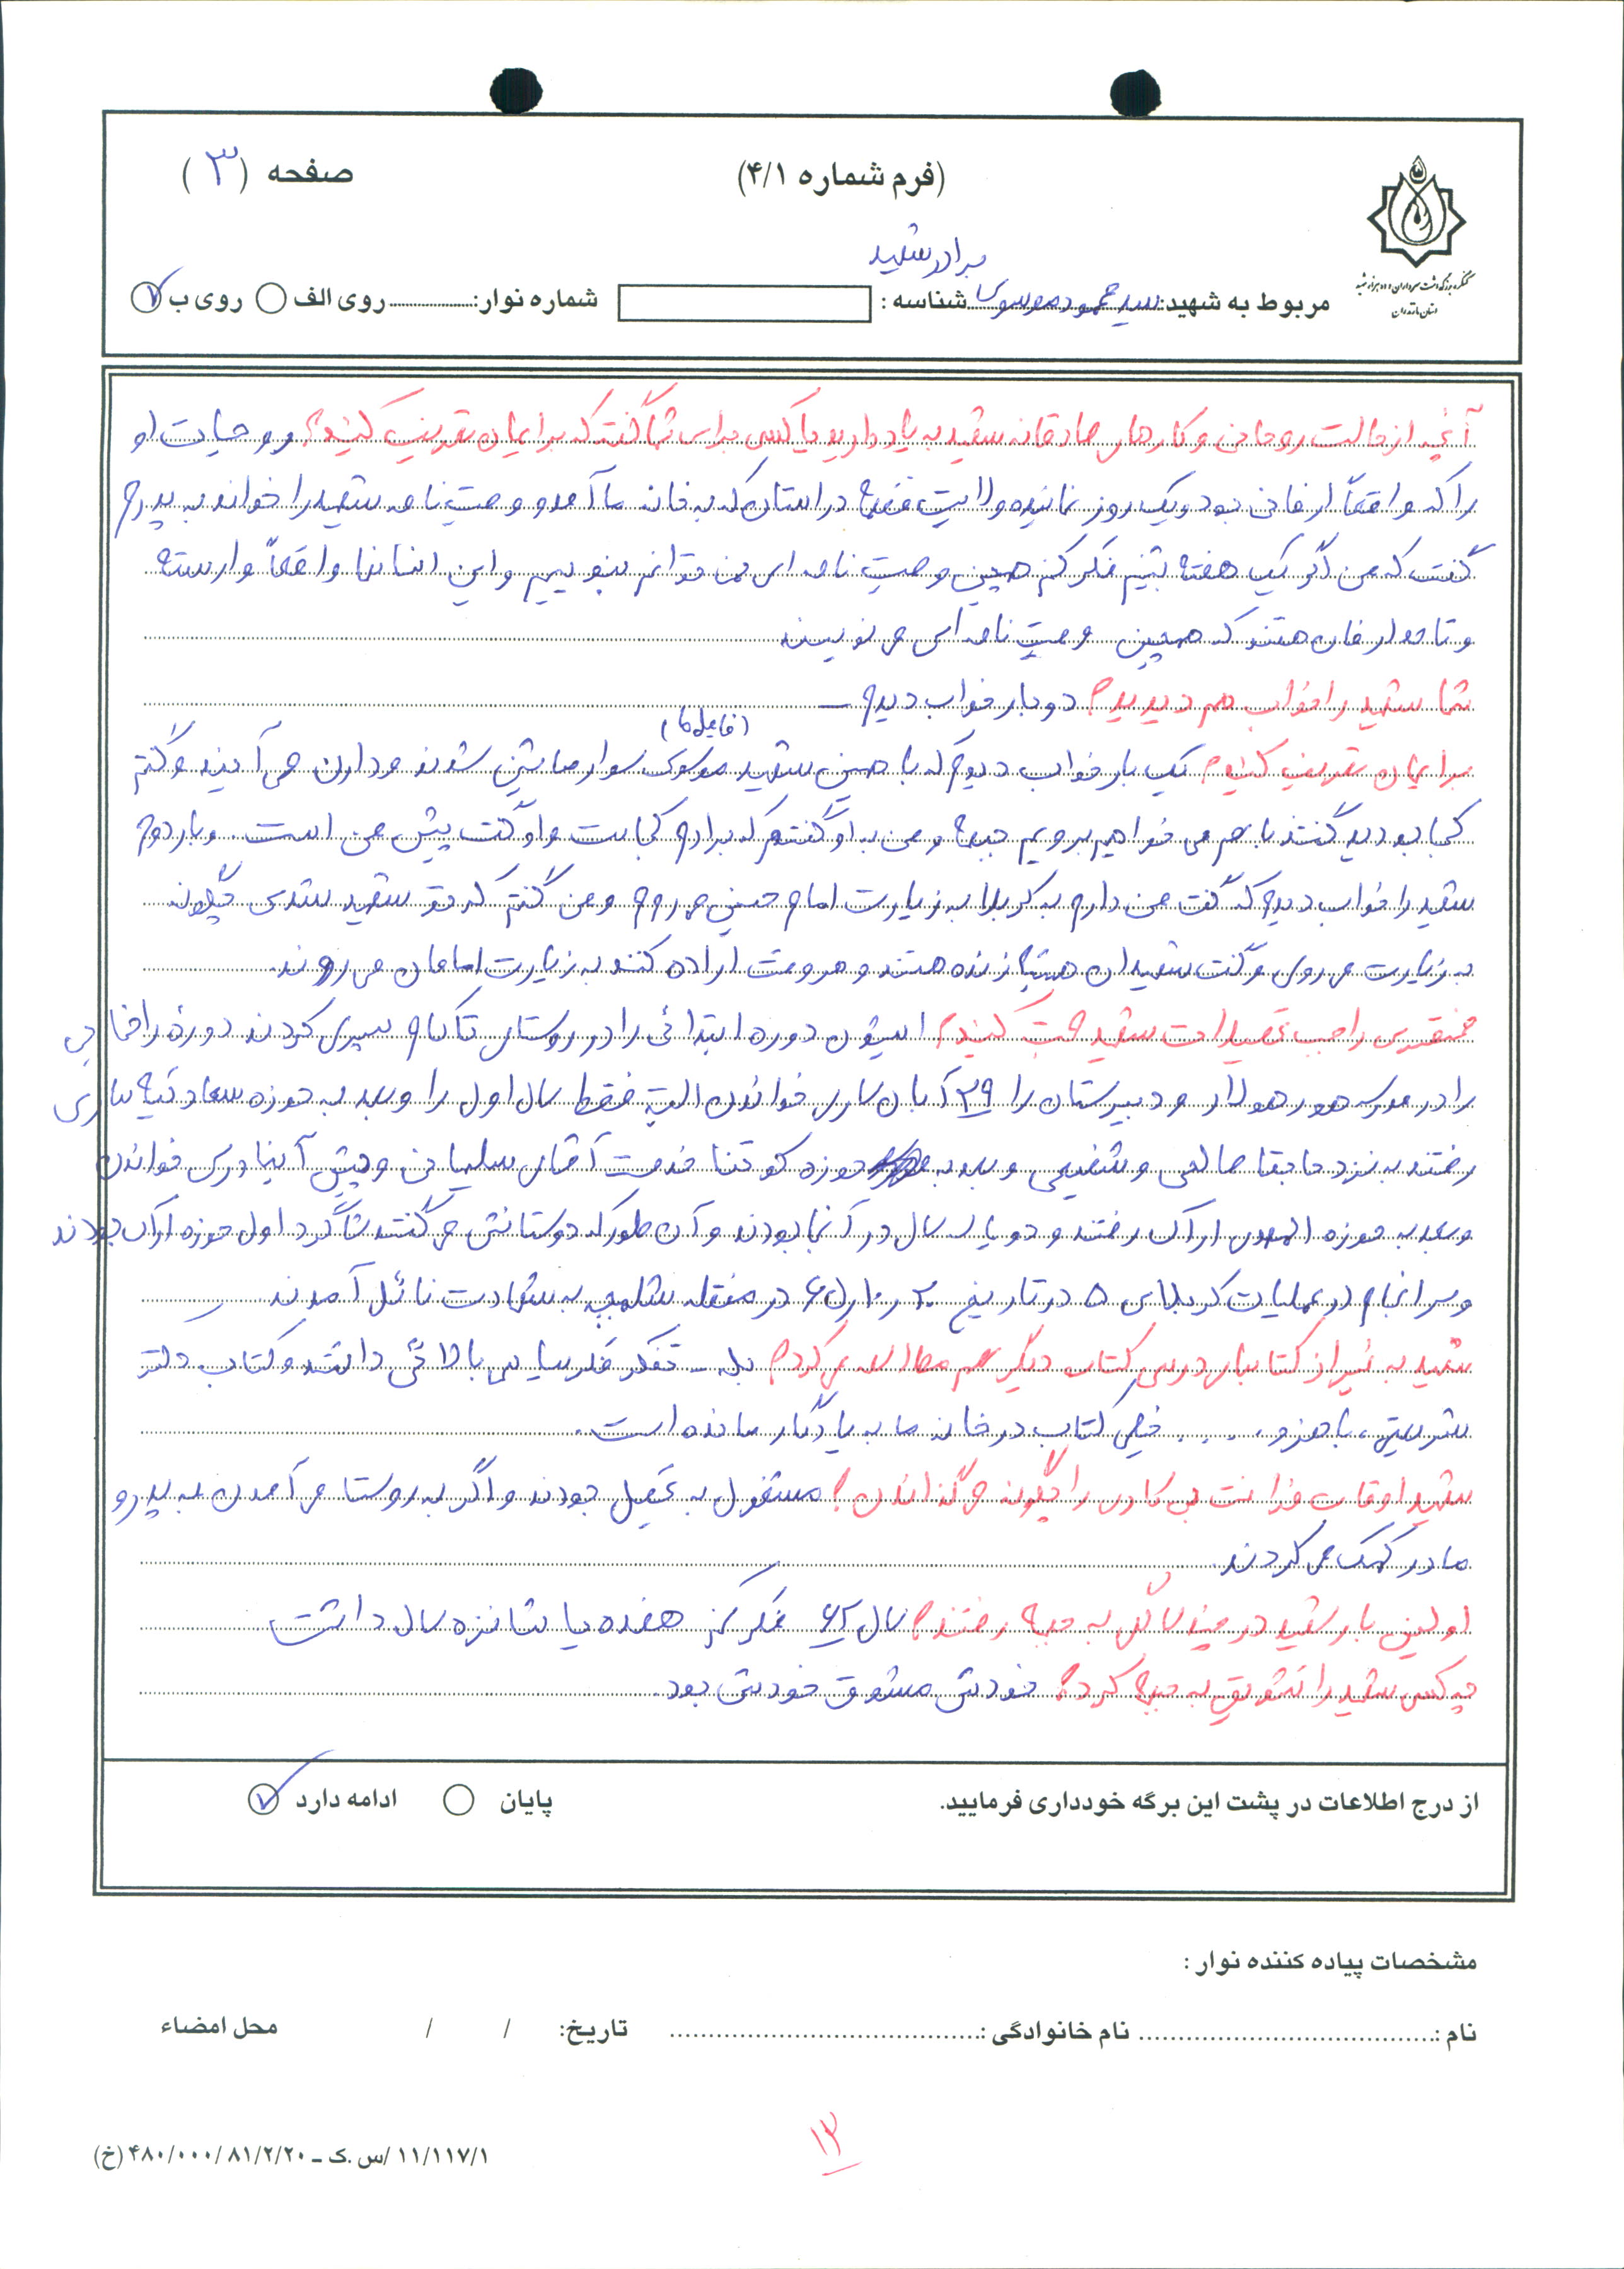 (فرم شماره ۴/۱)
صفحه (۳)
کنگره بزرگداشت سرداران و ده هزار شهید
استان مازندران
برادر شهید
مربوط به شهید: سید محمود موسوی شناسه: شماره نوار: روی الف روی ب
آنچه از حالت روحانی و کارهای صادقانه شهید به یاد دارید یا کسی برای شما گفت که برایمان تعریف کنید؟ روحیات او
را که واقعاً عرفانی بود و یک روز نماینده ولایت فقیه در استان که به خانه ما آمد و وصیت نامه شهید را خواند به پدرم
گفت که من اگر یک هفته بشینم فکر کنم همچین وصیت نامه ای نمی توانم بنویسم و این انسانها واقعاً وارسته
و عارفان هستند که همچین وصیت نامه ای می نویسند
شما شهید را خواب هم دیدید؟ دوبار خواب دیدم
(فامیل ما)
برایمان تعریف کنید؟ یک بار خواب دیدم که با همین شهید موسوی سوار ماشین شدند و دارن می آیند و گفتم
کجا بودید گفتند با هم می خواهیم برویم جبهه و من به او گفتم که برادرم کجاست و او گفت پیش من است. و بار دوم
شهید را خواب دیدم که گفت من دارم به کربلا به زیارت امام حسین می روم و من گفتم که تو شهید شدی چگونه
به زیارت می روی و گفت شهیدان همیشه زنده هستند و هر وقت اراده کنند به زیارت امامان می روند.
مختصری راجب تحصیلات شهید صحبت کنید؟ ایشون دوره ابتدائی را در روستای تاکام سپری کردند دوره راهنمایی
را در مدرسه هولار و دبیرستان را ۲۹ آبان ساری خواندن البته فقط سال اول را و بعد به حوزه سعادتیه ساری
رفتند به نزد حاجقا صالحی و شفیعی و بعد به حوزه کوتنا خدمت آقای سلیمانی و پیش آنها درس خواندن
و بعد به حوزه المهدی اراک رفتند و دو یا سه سال در آنجا بودند و آن طور که دوستانش می گفتند شاگرد اول حوزه اراک بودند
و سرانجام در عملیات کربلای ۵ در تاریخ ۲۰/۱۰/۶۵ در منطقه شلمچه به شهادت نائل آمدند
شهید به غیر از کتابهای درسی کتاب دیگر هم مطالعه می کرد؟ بله - تفکر سیاسی بالائی داشتند و کتاب دکتر
شریعتی، باهنر و ..... خیلی کتاب در خانه ما به یادگار مانده است.
شهید اوقات فراغت بی کاری را چگونه می گذراندن؟ مشغول به تحصیل بودند و اگر به روستا می آمدن به پدر و
مادر کمک می کردند.
اولین بار شهید در چند سالگی به جبهه رفتند؟ سال ۶۲ فکر کنم هفده یا شانزده سال داشت
چه کسی شهید را تشویق به جبهه کرد؟ خودش مشوق خودش بود.
از درج اطلاعات در پشت این برگه خودداری فرمایید. پایان ادامه دارد
مشخصات پیاده کننده نوار :
نام : نام خانوادگی : تاریخ: / / محل امضاء
۱۳
۱۱/۱۱۷/۱ /س.ک ـ ۸۱/۲/۲۰ /۴۸۰/۰۰۰ (خ)